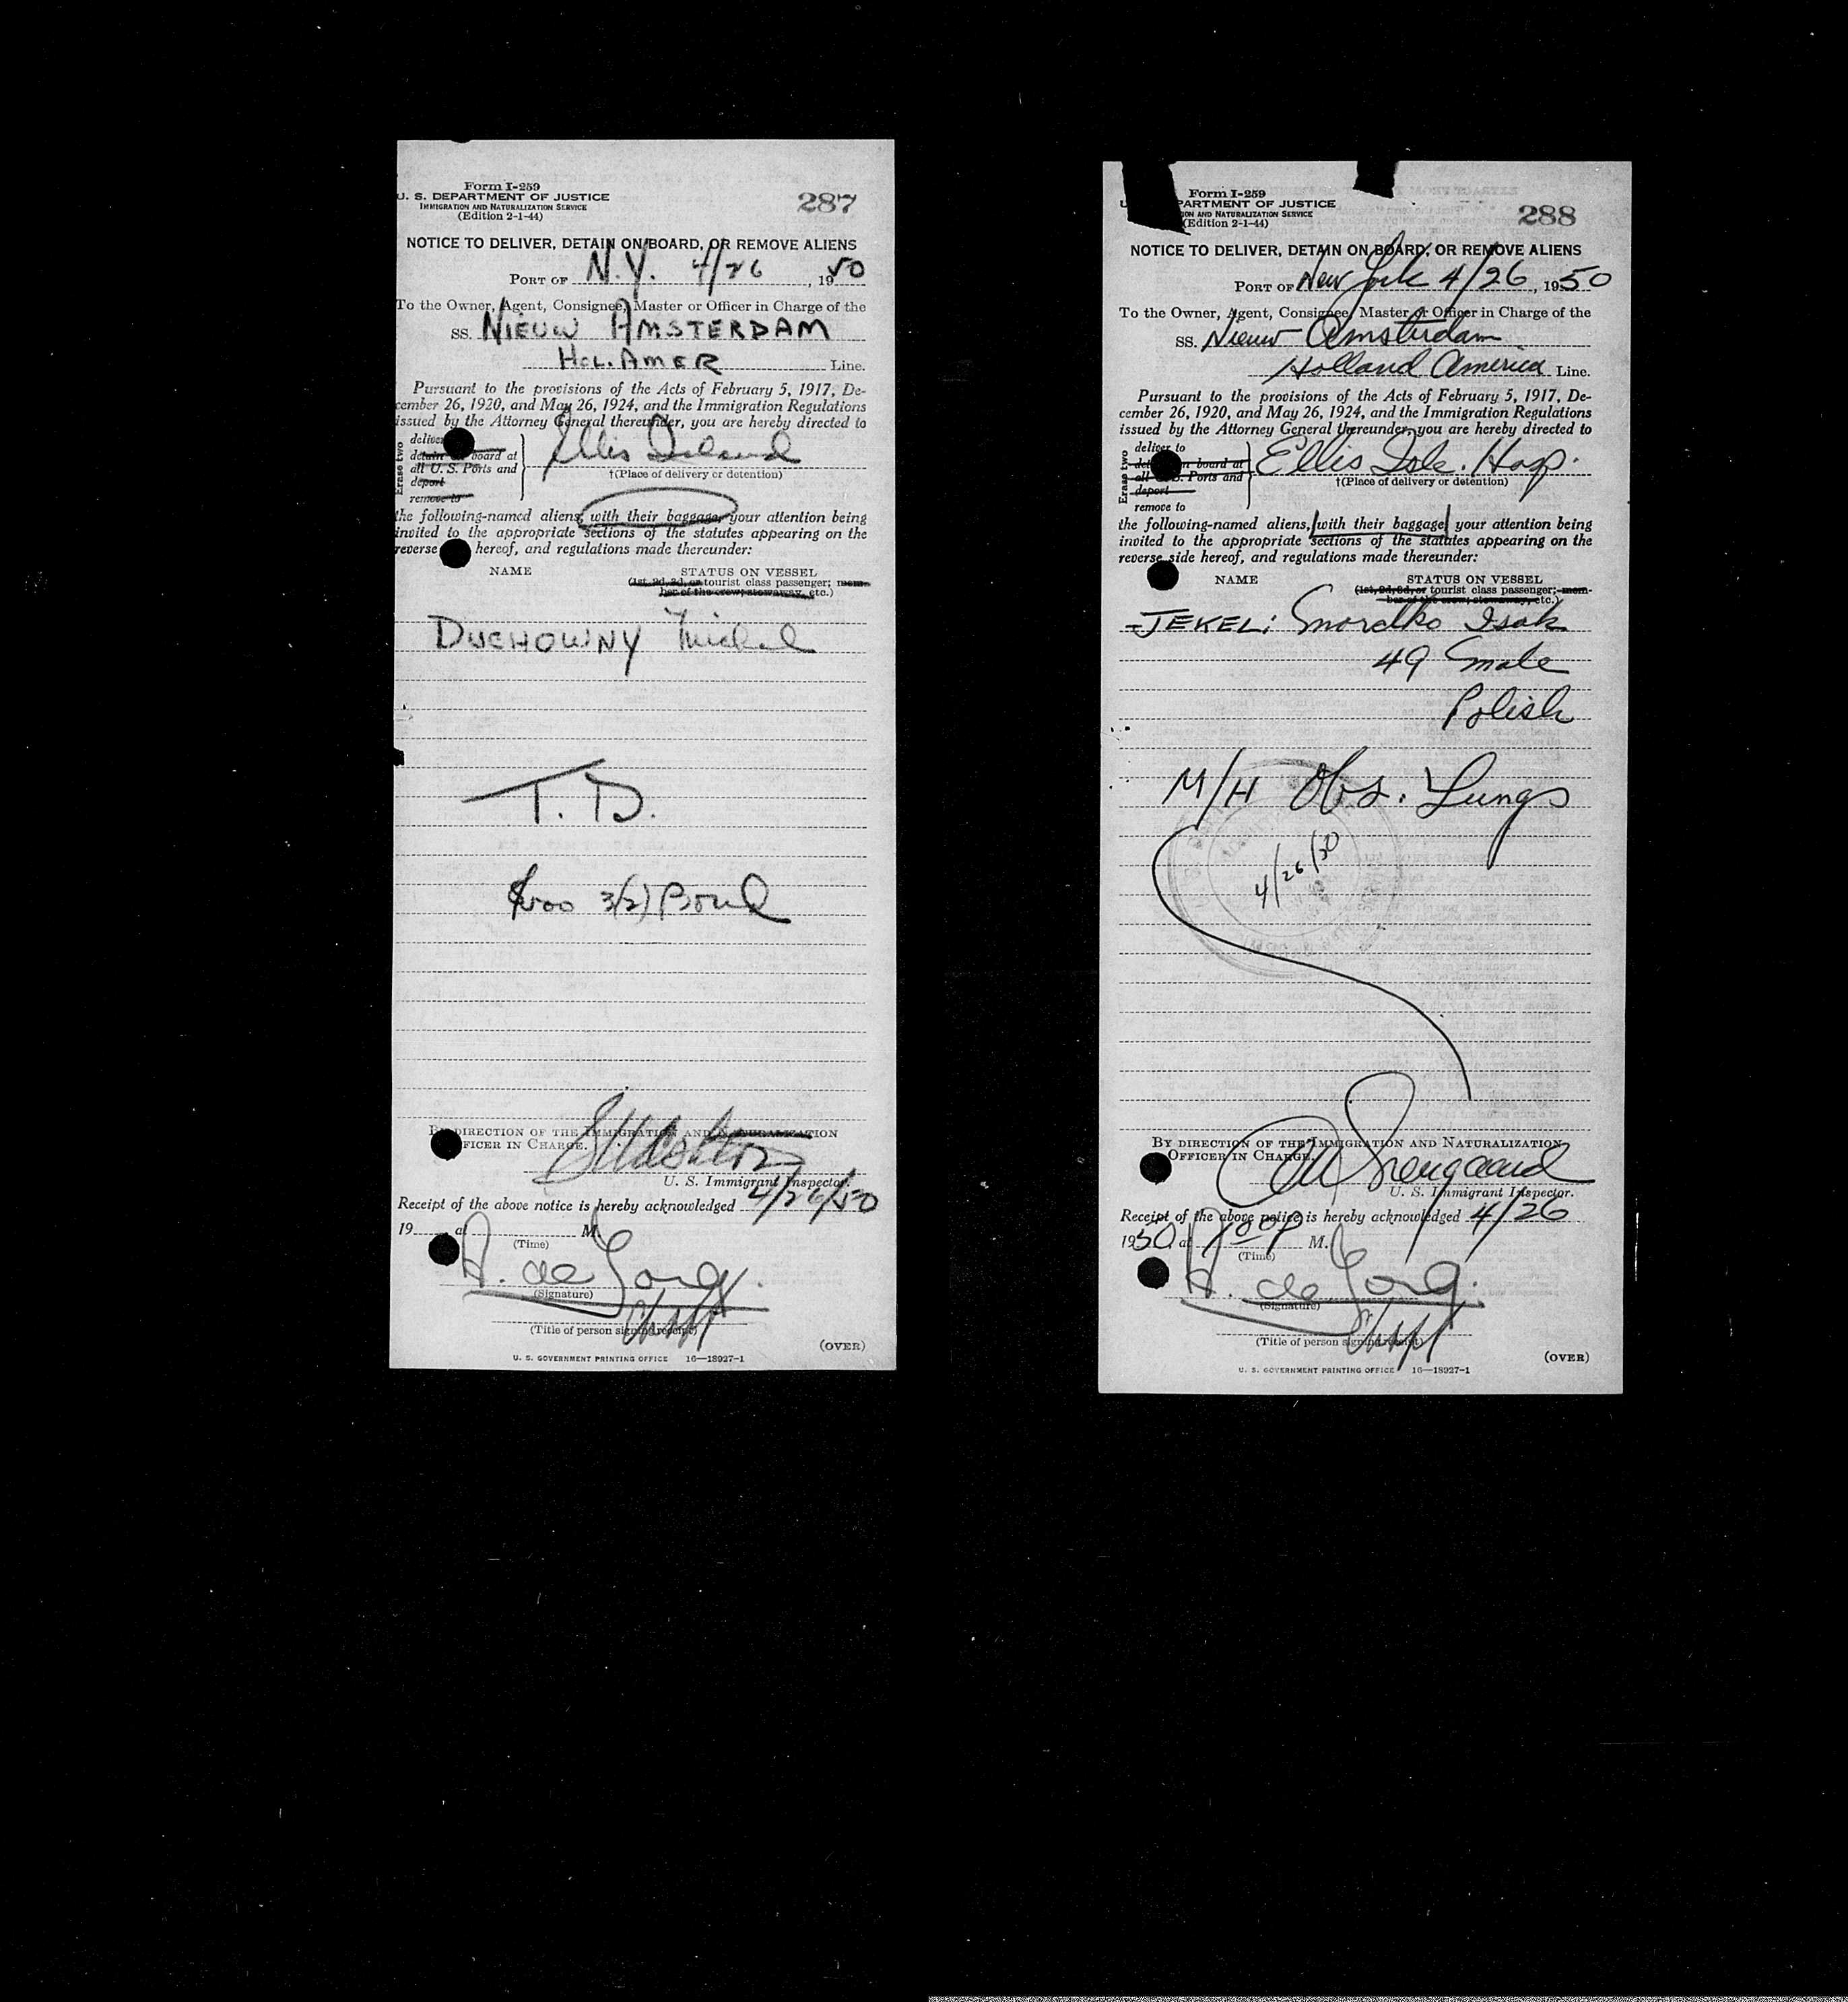 Form I-259
U. S. DEPARTMENT OF JUSTICE
IMMIGRATION AND NATURALIZATION SERVICE
(Edition 2-1-44)
287
NOTICE TO DELIVER, DETAIN ON BOARD, OR REMOVE ALIENS
PORT OF N.Y. 4/26, 1950
To the Owner, Agent, Consignee, Master or Officer in Charge of the
SS. NIEUW AMSTERDAM
HOL. AMER Line.
Pursuant to the provisions of the Acts of February 5, 1917, De-
cember 26, 1920, and May 26, 1924, and the Immigration Regulations
issued by the Attorney General thereunder, you are hereby directed to
Erase two
deliver
detain board at
all U. S. Ports and
deport
remove to
Ellis Island
†(Place of delivery or detention)
the following-named aliens, with their baggage, your attention being
invited to the appropriate sections of the statutes appearing on the
reverse hereof, and regulations made thereunder:
NAME STATUS ON VESSEL
(1st, 2d, 3d, or tourist class passenger; mem-
ber of the crew; stowaway, etc.)
DUCHOWNY Michal
T.D.
Bond
BY DIRECTION OF THE IMMIGRATION AND NATURALIZATION
OFFICER IN CHARGE.
U. S. Immigrant Inspector.
Receipt of the above notice is hereby acknowledged 4/26/50
19 at M.
(Time)
A. de Jong.
(Signature)
(Title of person signing receipt)
(OVER)
U. S. GOVERNMENT PRINTING OFFICE 16—18927-1
Form I-259
PARTMENT OF JUSTICE
ION AND NATURALIZATION SERVICE
(Edition 2-1-44)
288
NOTICE TO DELIVER, DETAIN ON BOARD, OR REMOVE ALIENS
PORT OF New York 4/26, 1950
To the Owner, Agent, Consignee, Master or Officer in Charge of the
SS. Nieuw Amsterdam
Holland America Line.
Pursuant to the provisions of the Acts of February 5, 1917, De-
cember 26, 1920, and May 26, 1924, and the Immigration Regulations
issued by the Attorney General thereunder, you are hereby directed to
Erase two
deliver to
n board at
all U. S. Ports and
deport
remove to
Ellis Isle. Hosp.
†(Place of delivery or detention)
the following-named aliens, with their baggage, your attention being
invited to the appropriate sections of the statutes appearing on the
reverse side hereof, and regulations made thereunder:
NAME STATUS ON VESSEL
(1st, 2d, 3d, or tourist class passenger; mem-
ber of the crew; stowaway, etc.)
JEKEL: Isak
49 male
Polish
M/H Obs. Lungs
4/26/50
BY DIRECTION OF THE IMMIGRATION AND NATURALIZATION
OFFICER IN CHARGE.
U. S. Immigrant Inspector.
Receipt of the above notice is hereby acknowledged 4/26
1950 at M.
(Time)
A. de Jong.
(Signature)
(Title of person signing receipt)
(OVER)
U. S. GOVERNMENT PRINTING OFFICE 16—18927-1